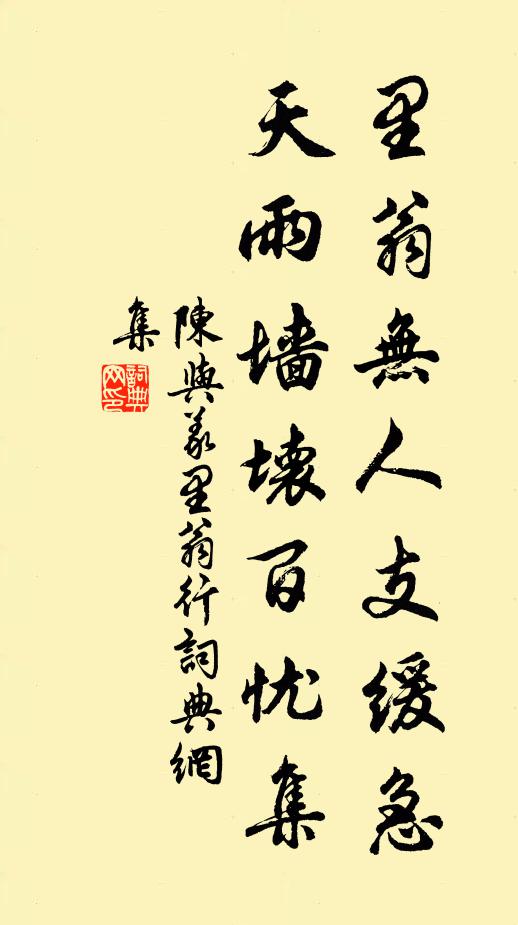 里翁無人支緩急
天雨墻壞百忧集
陳與義里翁行詞典網
集
詞典網印